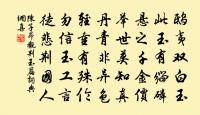 鴟夷双白玉
此玉有緇磷
懸之千金價
舉世莫知真
丹青非异色
輕重有殊倫
勿信玉工言
徒悲荆國人
陳子昂觀荆玉篇詞典
網集